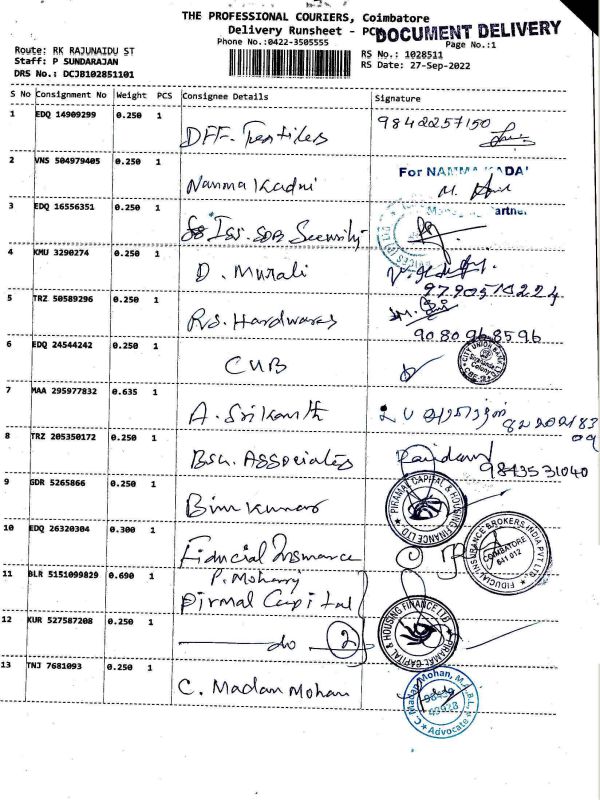 THE PROFESSIONAL COURIERS, Coimbatore
Delivery Runsheet - PC
DOCUMENT DELIVERY
Phone No.:0422-3505555
Page No.:1
Route: RK RAJUNAIDU ST
Staff: P SUNDARAJAN
DRS No.: DCJB102851101
RS No.: 1028511
RS Date: 27-Sep-2022
S No Consignment No Weight PCS Consignee Details Signature
1 EDQ 14909299 0.250 1
DFF. Textiles 9842257150
2 VNS 504979405 0.250 1
Nanma Kadai For NANMA KADAI
3 EDQ 16556351 0.250 1
SDB Security
4 KMU 3290274 0.250 1
D. Murali
9790510224
5 TRZ 50589296 0.250 1
R.S. Hardwares
9080968596
6 EDQ 24544242 0.250 1
CUB CITY UNION BANK
7 MAA 295977832 0.635 1
A. Srikanth
8 TRZ 205350172 0.250 1
Bsh. Associates 9843531040
9 GDR 5265866 0.250 1
Bim Kumar PIRAMAL CAPITAL & HOUSING FINANCE LTD
10 EDQ 26320304 0.300 1
Fiducial Insurance FIDUCIAL INSURANCE BROKERS INDIA PVT LTD COIMBATORE 641 012
11 BLR 5151099829 0.690 1
Pirmal Capital
12 KUR 527587208 0.250 1
do 2 PIRAMAL CAPITAL & HOUSING FINANCE LTD
13 TNJ 7681093 0.250 1
C. Madan Mohan C. Madan Mohan, M.A.,B.L., Advocate